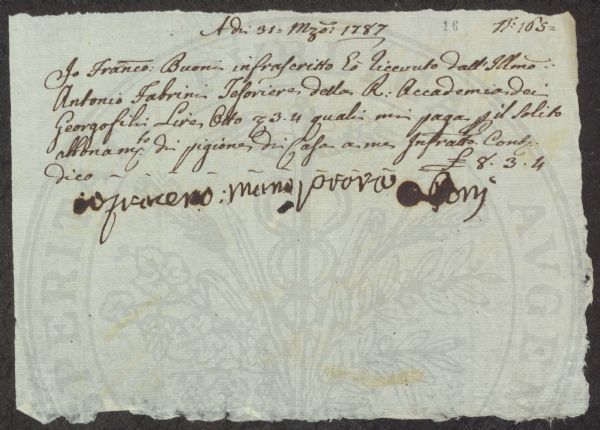 Adi 31. Mzo: 1787 16 No: 165=
Io Franco: Buoni infrascritto ho ricevuto dall'Illmo:
Antonio Fabrini Tesoriere della R: Accademia dei
Georgofili Lire Otto e 3.4 quali mi paga p il Solito
abbonamto: di pigione di Casa a me Infratto. Cont
dico £ 8. 3. 4
io franceso: mano
PERIT
AVGEN